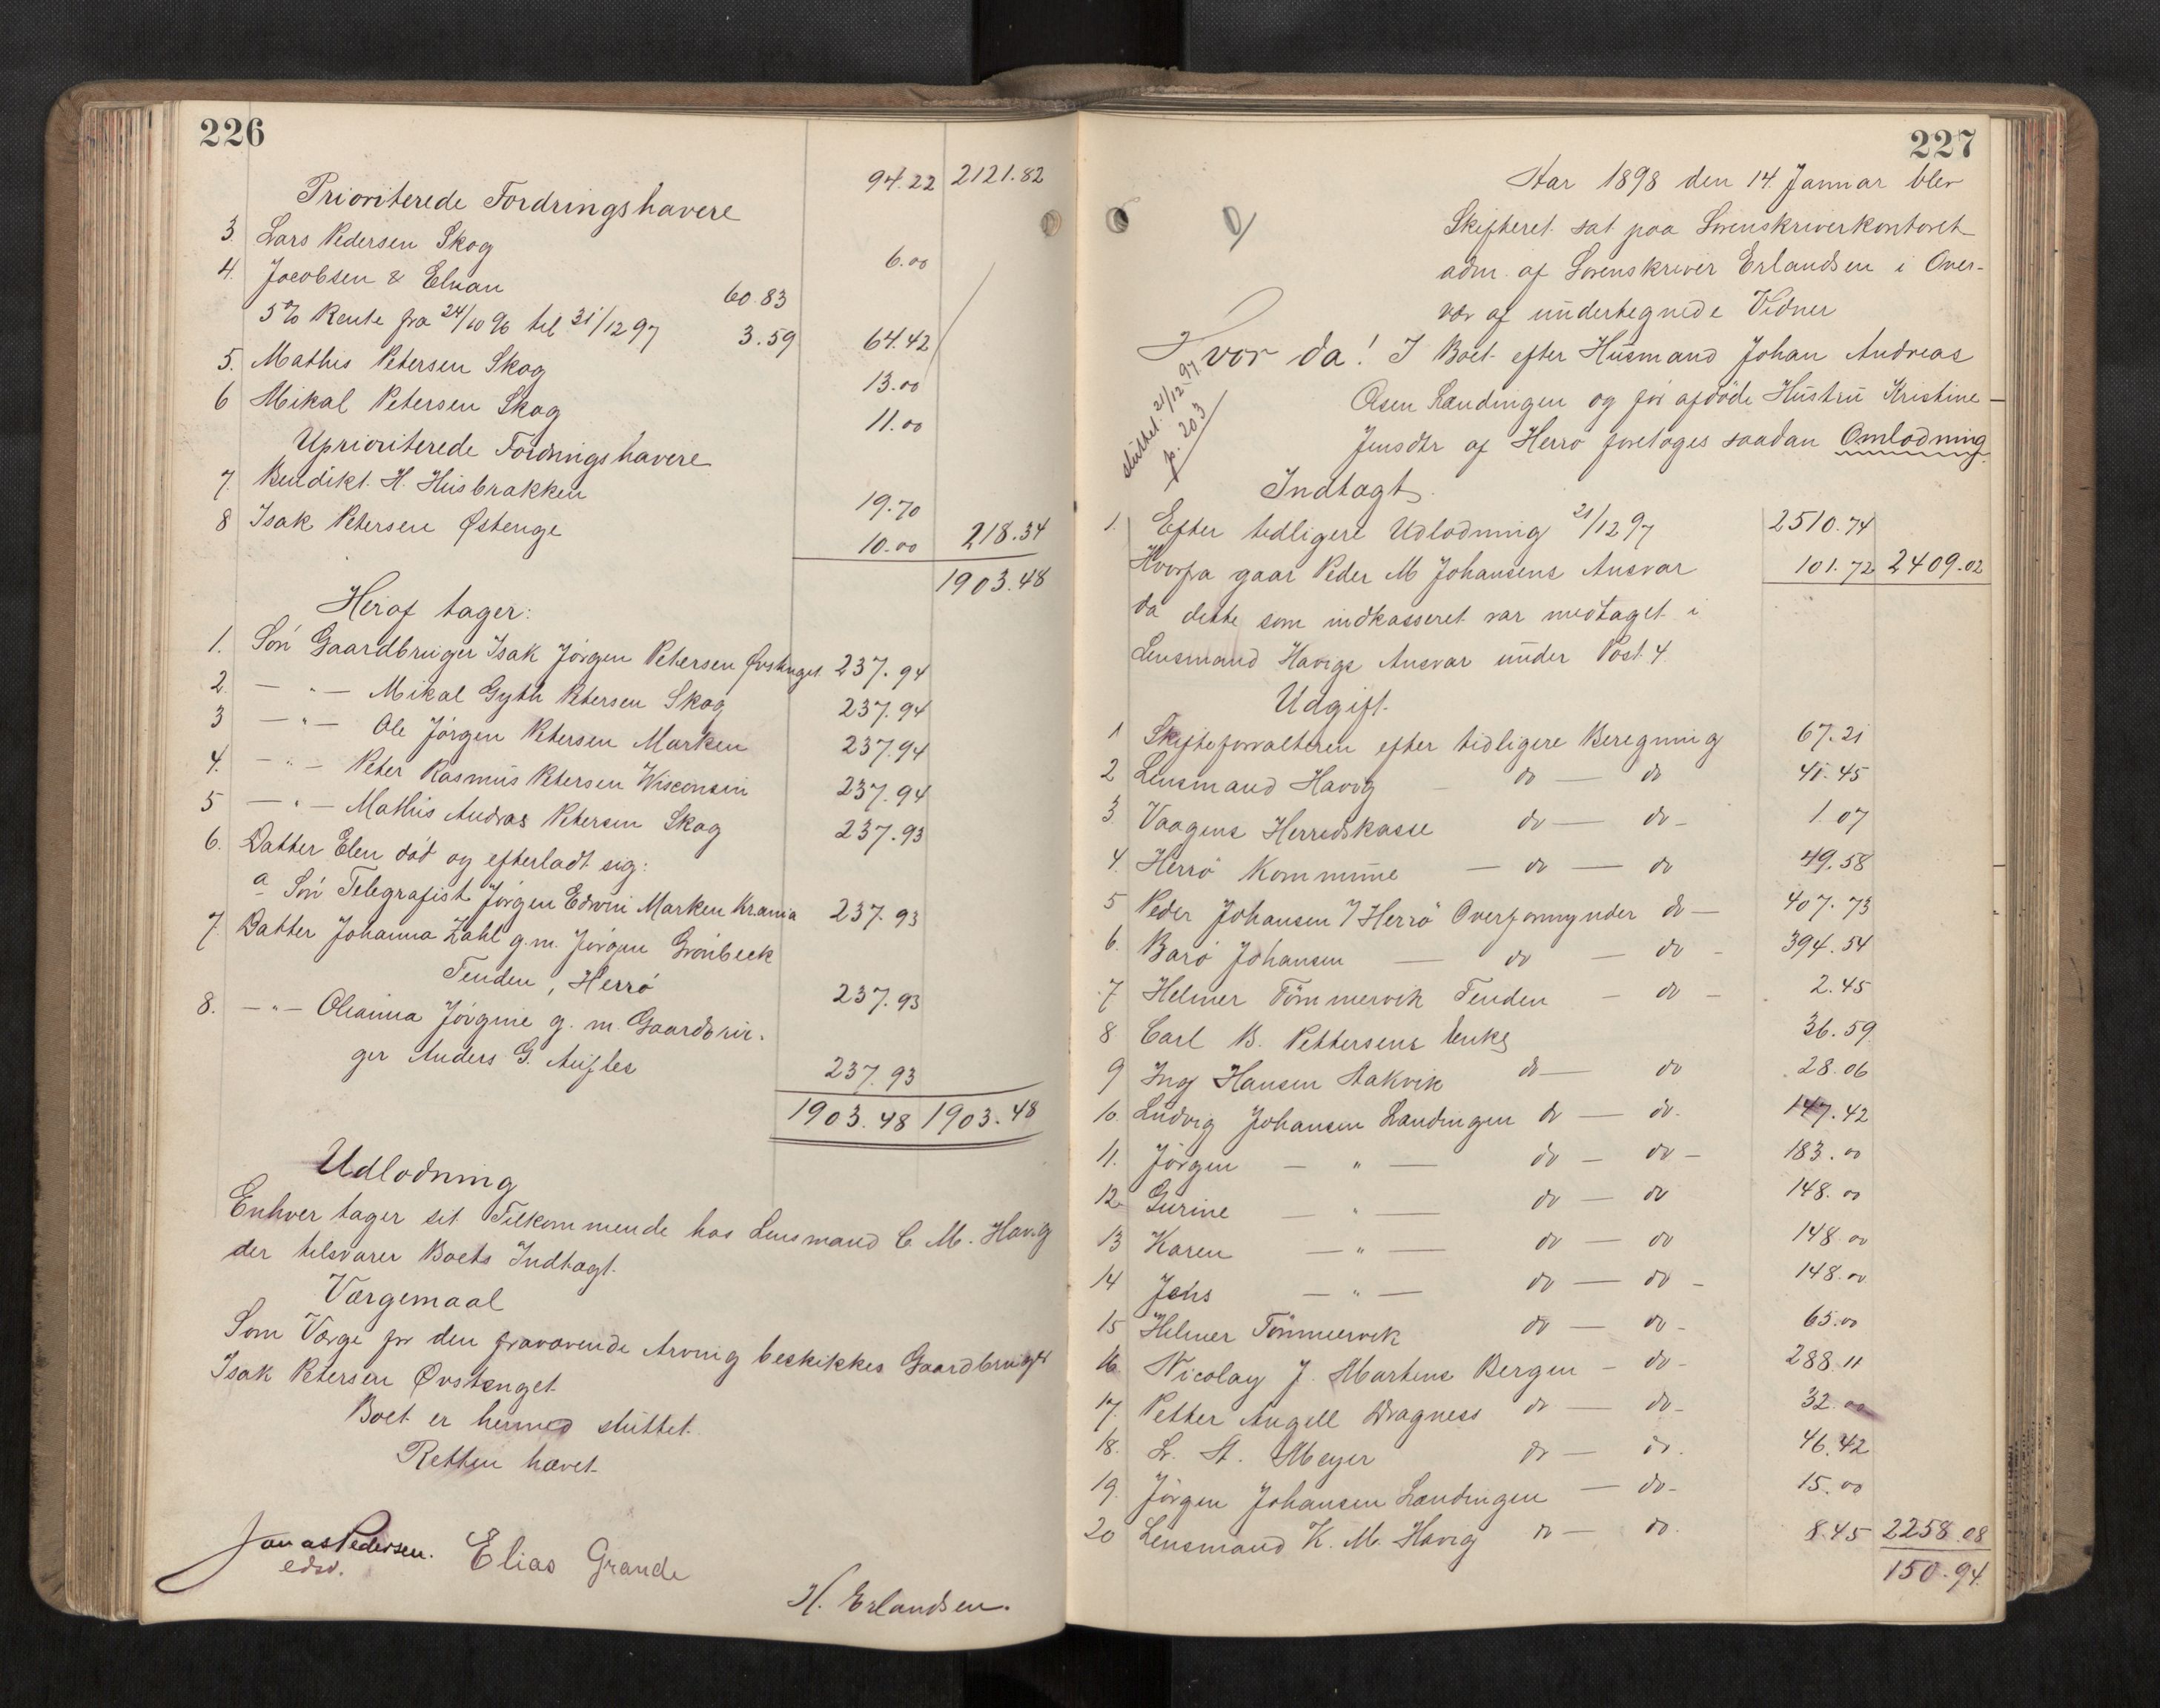 226
94.22 2121.82
Prioriterede Fordringshavere
3. Lars Pedersen Skog 6.00
4. Jacobsen & Elvan 60.83
5% Rente fra 24/10 96 til 31/12 97 3.59 64.42
5. Mathis Petersen Skog 13.00
6 Mikal Petersen Skog 11.00
Uprioriterede Fordringshavere
7. Bendikt. H. Husbrakken 19.70
8 Isak Petersen Østenge 10.00 218.34
1903.48
Heraf tager:
1. Søn Gaardbruger Isak Jørgen Petersen Øvstenget 237.94
2. — " — Mikal Gyth Petersen Skog 237.94
3 — " — Ole Jørgen Petersen Marken 237.94
4. — " — Peter Rasmus Petersen Wisconsin 237.94
5 — " — Mathis Andreas Petersen Skog 237.93
6. Datter Elen död og efterladt sig:
a Søn Telegrafist Jørgen Edvin Marken Krania 237.93
7. Datter Johanna Zahl g.m. Jørgen Grönbeck
Tenden, Herrö 237.93
8. — " — Olianna Jörgine g. m. Gaardbru-
ger Anders G. 237.93
1903.48 1903.48
Udlodning
Enhver tager sit Tilkommende hos Lensmand C. M. Havig
der tilsvarer Boets Indtægt.
Værgemaal
Som Værge for den fraværende Arving beskikkes Gaardbruger
Isak Petersen Øvstenget
Boet er hermed sluttet.
Retten hævet
Jonas Pedersen. Elias Grande
edsv.
H. Erlandsen.
227
Aar 1898 den 14. Januar blev
Skifteret sat paa Sorenskriverkontoret
adm. af Sorenskriver Erlandsen i Over-
vær af undertegnede Vidner
Hvor da! I Boet efter Husmand Johan Andreas
Olsen Landingen og før afdöde Hustru Kristine
Jensdtr af Herrö foretoges saadan Omlodning
sluttet 21/12 97
p. 203
Indtægt
1. Efter tidligere Udlodning 21/12 97 2510.74
Hvorfra gaar Peder M Johansens Ansvar 101.72 2409.02
da dette som indkasseret var medtaget i
Lensmand Havigs Ansvar under Post 4.
Udgift.
1 Skifteforvalteren efter tidligere Beregning 67.21
2 Lensmand Havig — do — do 41.45
3. Vaagens Herredskasse do — do — 1.07
4. Herrö Kommune — do — do 49.58
5 Peder Johansen / Herrö Overformynder do — 407.73
6. Barö Johansen — do — do — 394.54
7 Helmer Tömmervik Tenden — do — 2.45
8 Carl B. Pettersens Enke 36.59
9 Ing Hansen Aakvik do — do 28.06
10. Ludvig Johansen Landingen do — do. 147.42
11. Jörgen — " — do — do — 183.00
12 Gurine — " — do — do 148.00
13 Karen — " — do — do 148.00
14 Jens — " — do — do — 148.00
15 Helmer Tömmervik do — do — 65.00
16. Nicolay J. Martens Bergen — do — 288.11
17. Petter Angell Dragness do — do — 32.00
18. L. A. Meyer do — do. 46.42
19. Jörgen Johansen Landingen — do — 15.00
20 Lensmand K. M. Havig do — do. 8.45 2258.08
150.94